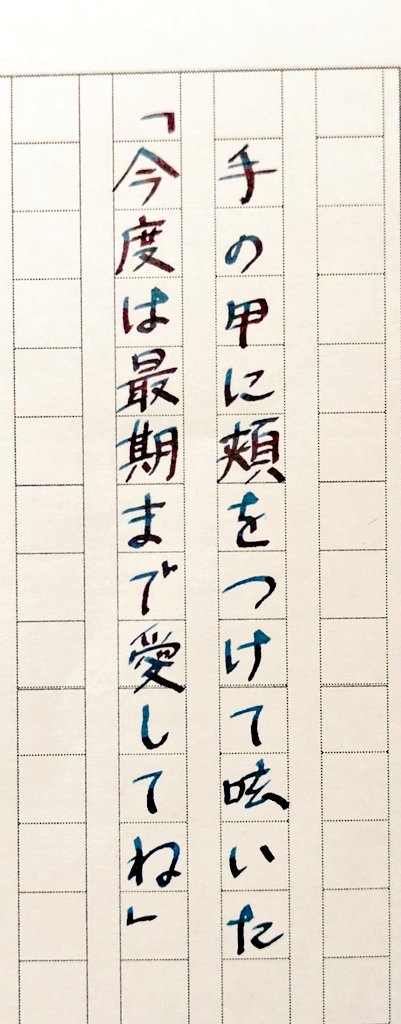 手の甲に頬をつけて呟いた
「今度は最期まで愛してね」